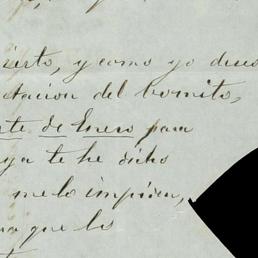 ierto, y como yo dese
tacion del bonito,
rte de Enero para
ya te he dicho
me lo impiden,
que los